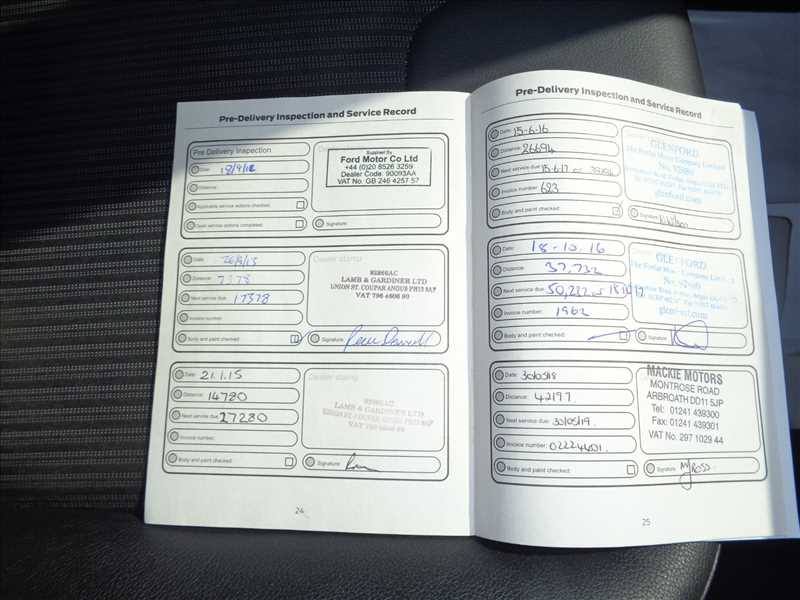 Pre-Delivery Inspection and Service Record
Pre Delivery Inspection
Date: 18/9/12
Distance:
Applicable service actions checked:
Open service actions completed:
Supplied By
Ford Motor Co Ltd
+44 (0)20 8526 3259
Dealer Code: 90093AA
VAT No. GB 246 4257 57
Signature:
Date: 26/9/13
Distance: 7378
Next service due: 17378
Invoice number:
Body and paint checked:
Dealer stamp
LAMB & GARDINER LTD
UNION ST. COUPAR ANGUS PH13 9AP
VAT 796 4606 90
Signature:
Date: 21.1.15
Distance: 14780
Next service due: 27280
Invoice number:
Body and paint checked:
Dealer stamp
LAMB & GARDINER LTD
UNION ST. COUPAR ANGUS PH13 9AP
VAT 796 4606 90
Signature:
24
Pre-Delivery Inspection and Service Record
Date: 15-6-16
Distance: 26694
Next service due: 15-6-17 or
Invoice number: 623
Body and paint checked:
GLENFORD
The Forfar Motor Company Limited
Signature:
Date: 18-10-16
Distance: 37,732
Next service due: 50,232 or 18.10.17
Invoice number: 1962
Body and paint checked:
GLENFORD
The Forfar Motor Company Limited
Signature:
Date: 30/05/18
Distance: 42177
Next service due: 30/05/19.
Invoice number: 02224601.
Body and paint checked:
MACKIE MOTORS
MONTROSE ROAD
ARBROATH DD11 5JP
Tel: 01241 439300
Fax: 01241 439301
VAT No. 297 1029 44
Signature: M Ross
25